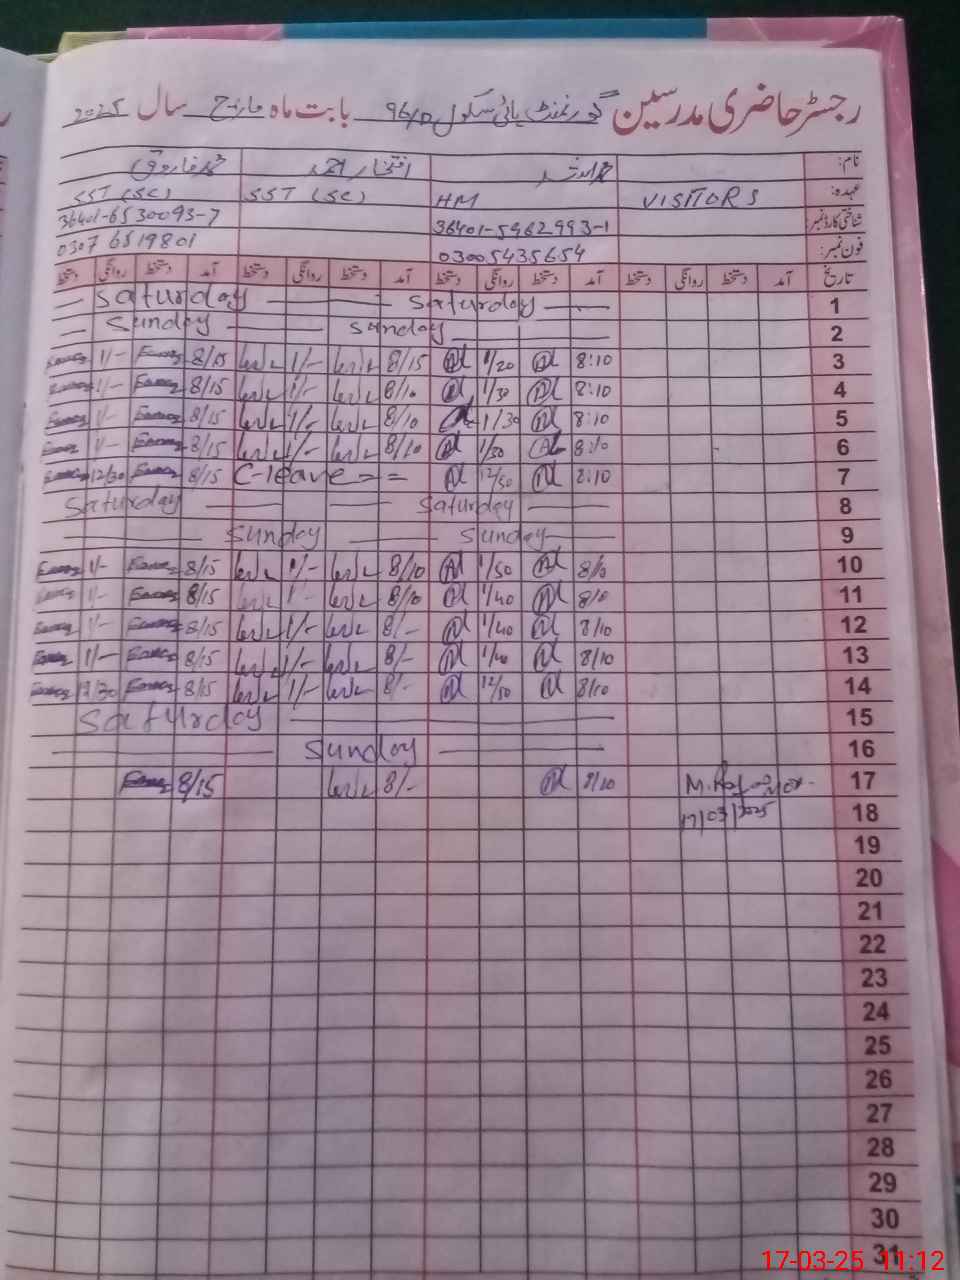 رجسٹر حاضری مدرسین گورنمنٹ ہائی سکول 96/D بابت ماہ مارچ سال 2025
نام: محمد ارشد افتخار احمد محمد فاروق
عہدہ: VISITORS HM SST (SC) SST (SC)
شناختی کارڈ نمبر: 36401-5962993-1 36401-6530093-7
فون نمبر: 03005435654 0307 6519801
تاریخ آمد دستخط روانگی دستخط آمد دستخط روانگی دستخط آمد دستخط روانگی دستخط آمد دستخط روانگی دستخط
Saturday Saturday 1
Sunday Sunday 2
1/- 8/15 1/- 8/15 1/20 8:10 3
1/- 8/15 1/- 8/10 1/30 8:10 4
1/- 8/15 1/- 8/10 1/30 8:10 5
1/- 8/15 1/- 8/10 1/30 8:10 6
12/30 8/15 C-leave = = 12/50 8:10 7
Saturday Saturday 8
Sunday Sunday 9
1/- 8/15 1/- 8/10 1/50 8/10 10
1/- 8/15 1- 8/10 1/40 8/10 11
1/- 8/15 1/- 8/- 1/40 8/10 12
1/- 8/15 1/- 8/- 1/40 8/10 13
12/30 8/15 1/- 8/- 12/50 8/10 14
Saturday 15
Sunday 16
8/15 8/- 8/10 17
17/03/2025 18
19
20
21
22
23
24
25
26
27
28
29
30
31
17-03-25 11:12